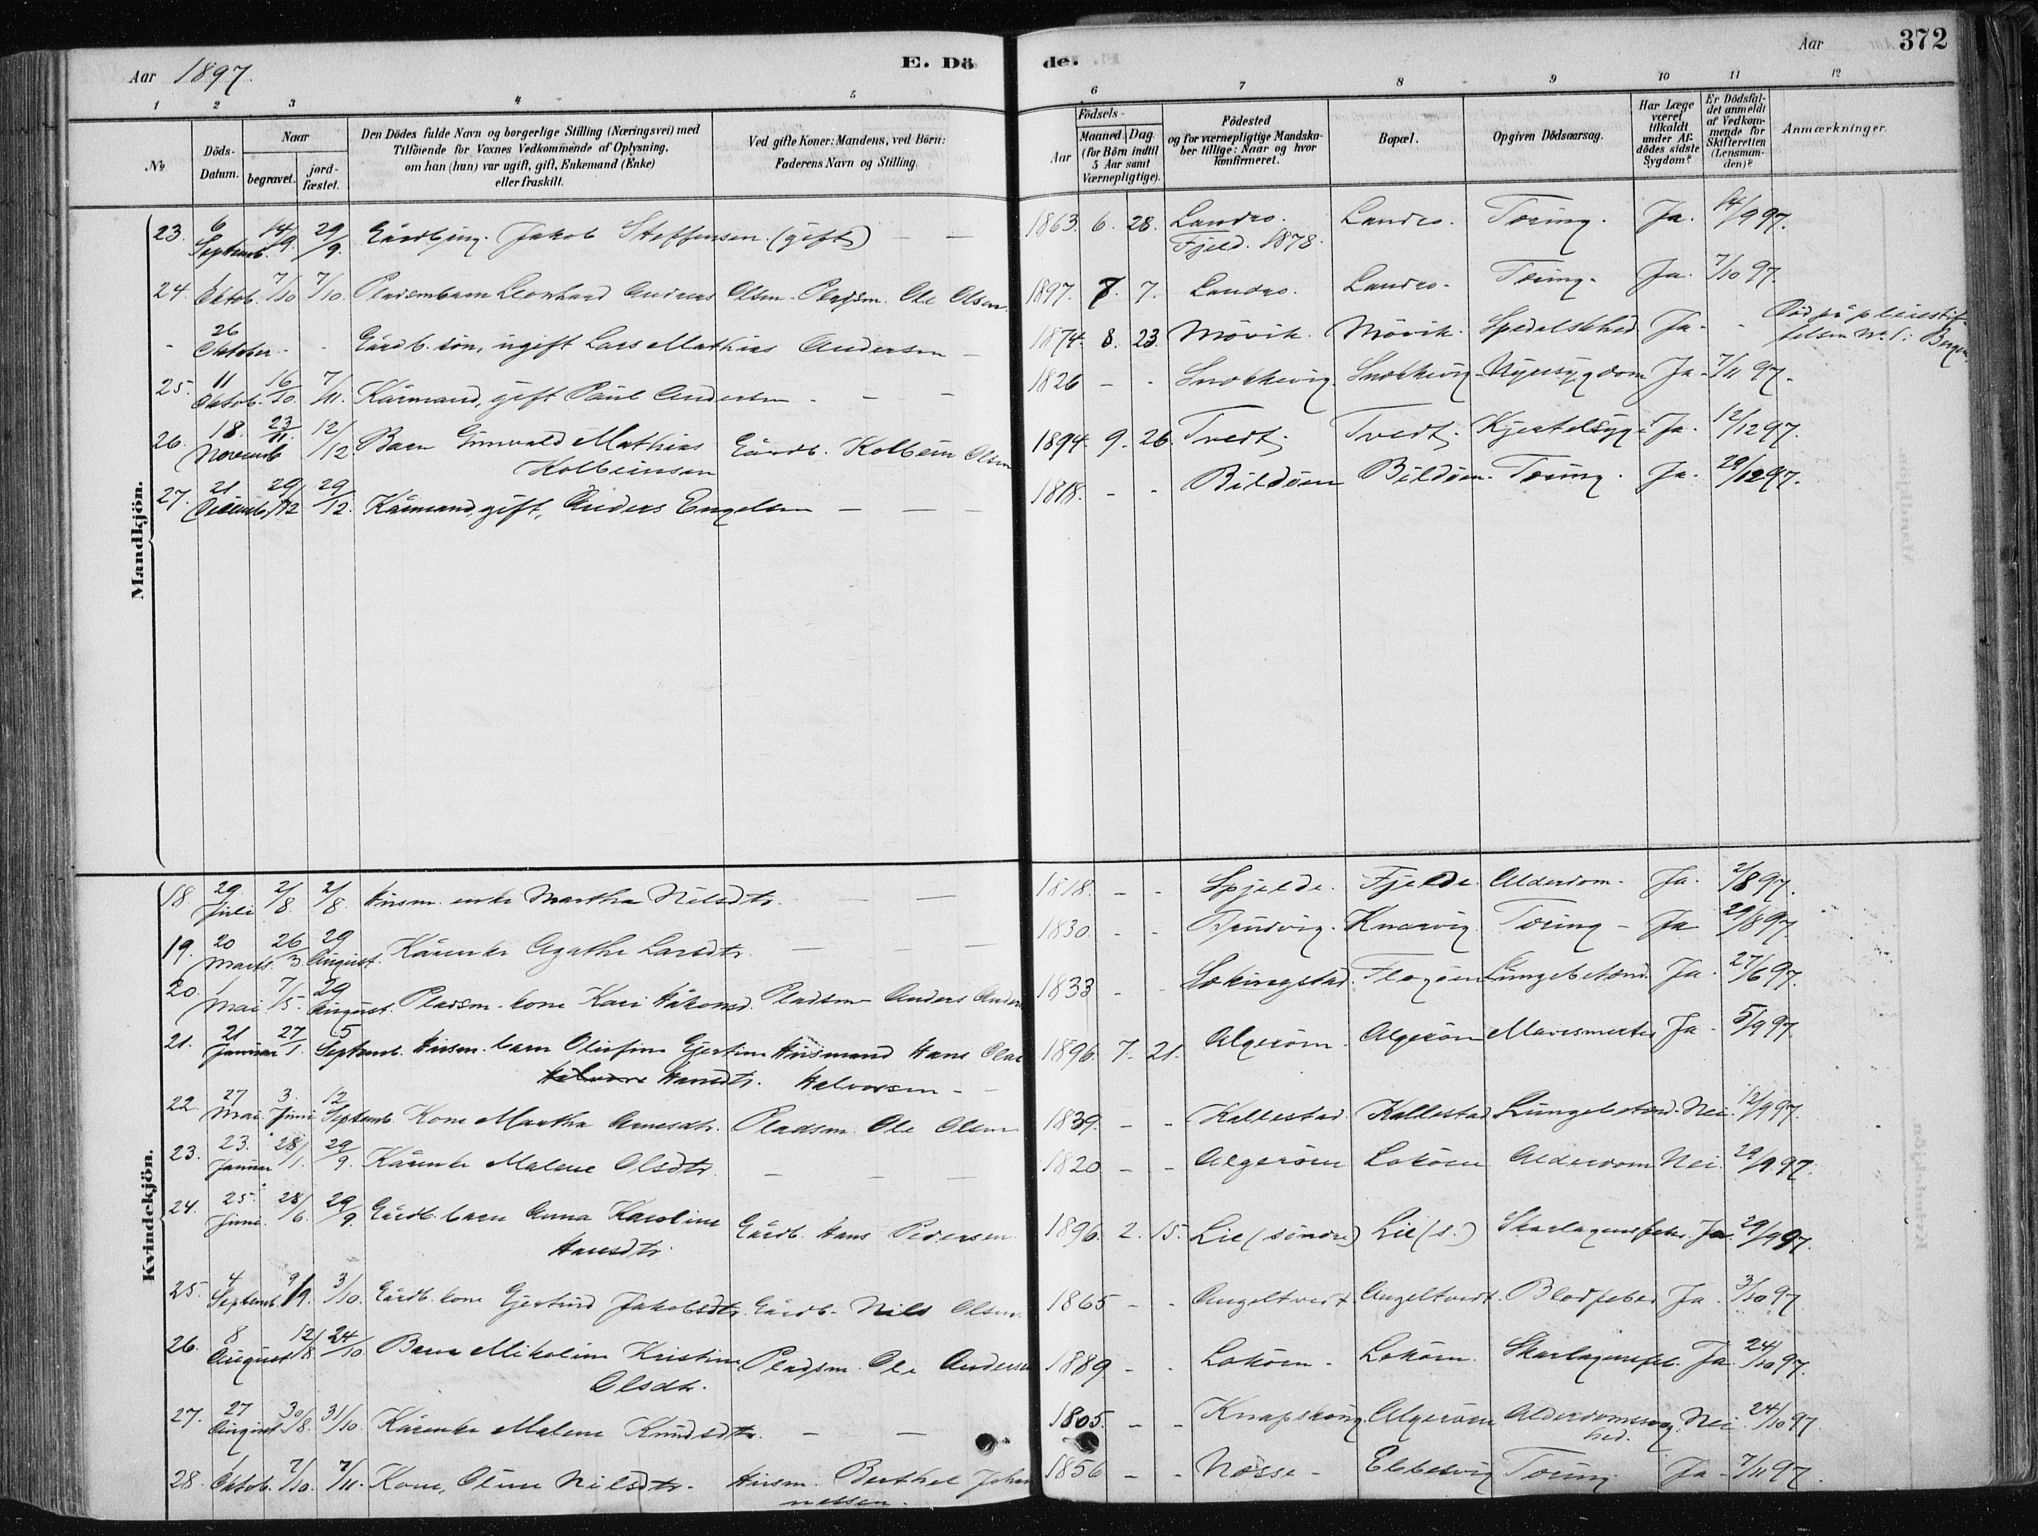 Aar 1897.
E. Dö de.
Aar 372
1 2 3 4 5 6 7 8 9 10 11 12
No
Döds-Datum.
Naar
begravet.
jord-fæstet.
Den Dödes fulde Navn og borgerlige Stilling (Næringsvei) med
Tilföiende for Voxnes Vedkommende af Oplysning,
om han (hun) var ugift, gift, Enkemand (Enke)
eller fraskilt.
Ved gifte Koner: Mandens, ved Börn:
Faderens Navn og Stilling.
Födsels-
Aar
Maaned. Dag.
(for Börn indtil
5 Aar samt
Værnepligtige).
Födested
og for værnepligtige Mandska-
ber tillige: Naar og hvor
konfirmeret.
Bopæl.
Opgiven Dödsaarsag.
Har Læge
været
tilkaldt
under Af-
dödes sidste
Sygdom?
Er Dödsfal-
det anmeldt
af Vedkom-
mende for
Skifteretten
(Lensman-
den)?
Anmærkninger.
Mandkjön.
23. 6 Septemb. 14/9 29/9. Gårdbrug. Jakob Steffensen (gift) — — 1863. 6. 28. Landro. Fjeld. 1878. Landro. Tæring. Ja. 14/9 97.
24. 1 Oktob. 7/10 7/10. Pladsmbarn Leonhard Andreas Olsen. Pladsm. Ole Olsen. 1897. 7. 7. Landro. Landro. Tæring. Ja. 7/10 97.
- 26 Oktober. - Gårdb. søn, ugift Lars Mathias Andersen — 1874. 8. 23. Møvik. Møvik. Spedalskhed Ja. - Død på pleiestif-
telsen No. 1 i Bergen.
25. 11 Oktob. 16/10. 7/11. Kårmand, gift Paul Andersen. — — 1826 - - Snekkevig. Snekkevig. Nyresygdom Ja. 7/11 97.
26. 18. Novemb 23/11. 12/12 Barn Gunvald Mathias Kolbeinsen Gårdb. Kolbein Olsen 1894. 9. 26. Tvedt. Tvedt. Kjertelsyge Ja. 12/12 97.
27. 21 Decemb. 29/12 29/12. Kårmand, gift, Anders Engelsen — — — 1818. - - Bildøen Bildøen. Tæring. Ja. 29/12 97.
Kvindekjön.
18 29 Juli 2/8. 2/8. Husm. enke Martha Nilsdtr. — — 1818. - - Spjelde. Fjelde. Alderdom. Ja. 2/8 97.
19. 20 Marts. 26/3. 29 August. Kårenke Agathe Larsdtr. — — 1830. - - Knarvig Tæring - Ja 29/8 97.
20. 1 Mai 7/5. 29 August. Pladsm. kone Kari Håkonsd. Pladsm. Anders 1833 - - Lungebetænd. Ja. 27/6 97.
21. 21 Januar 27/1. 5 Septemb. Husm. barn Olufine Gjertine Hansdtr. Husmand Hans Olai Halvorsen - 1896. 7. 21. Algerøen. Algerøen Ja. 5/9 97.
22. 27 Mai. 3. Juni 12 Septemb. Kone Martha Arnesdtr. Pladsm. Ole Olsen 1839. - - Kallestad Kallestad Lungebetænd. Nei. 12/9 97.
23. 23. Januar 28/1. 29/9. Kårenke Malene Olsdtr. — — — 1820 - - Algerøen Lokøen Alderdom Nei. 29/9 97.
24. 25. Juni. 28/6. 29/9. Gårdb. barn Anna Karoline Hansdtr. Gårdb. Hans Pedersen. 1896. 2. 15. Lie (søndre) Lie (s.) Skarlagensfeber. Ja. 29/9 97.
25. 4 Septemb. 9/9. 3/10. Gårdb. kone Gjertrud Jakobsdtr. Gårdb. Nils Olsen. 1865 - - Angeltvedt. Angeltvedt. Blodfeber Ja. 3/10 97.
26. 8 August 12/8. 24/10 Barn Mikoline Kristine Olsdtr. Pladsm. Ole Andersen 1889 - - Lokøen - Lokøen. Skarlagensfeb. Ja. 24/10 97.
27. 27 August 30/8. 31/10. Kårenke Malene Knudsdtr. — — 1805. - - Algerøen Alderdomssvag-
hed. Nei. 24/10 97.
28. 1 Oktob. 7/10. 7/11. Kone, Oline Nilsdtr. Husm. Berthel Johan-
nessen. 1856 - - Nesse - Ebbesvig Tæring. Ja. 7/11 97.